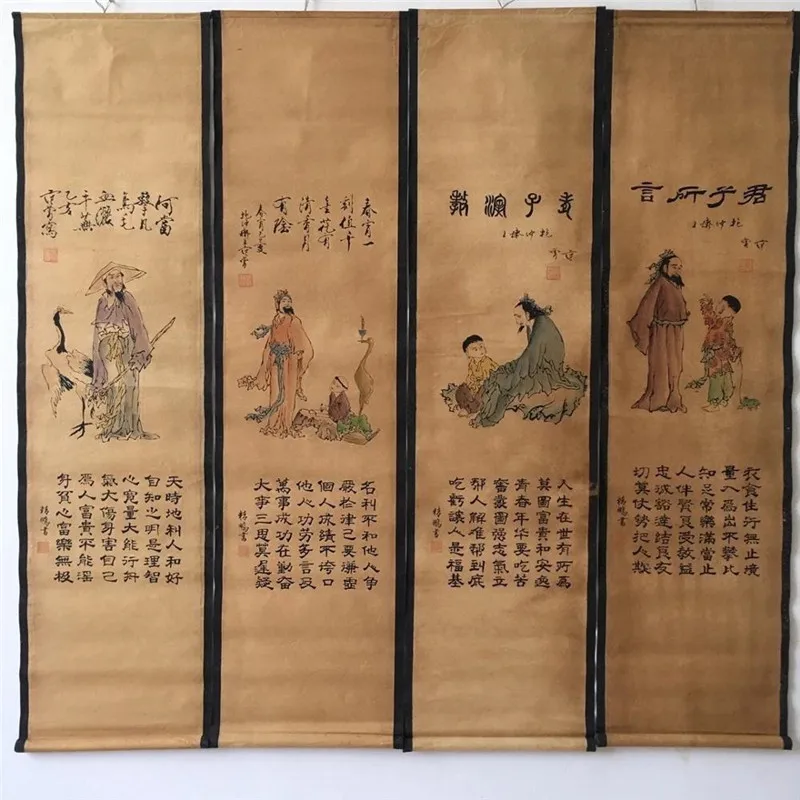 君子所言
衣食住行無止境
量入為出不攀比
知足常樂滿當止
人伴賢良受教益
忠誠豁達結良友
切莫仗勢把人欺
楊鵬書
老子演教
人生在世有所為
莫圖富貴和安逸
青春年华要吃苦
奮發圖强志氣立
帮人解难帮到底
吃虧讓人是福基
楊鵬書
春宵一
刻值千
金花有
清香月
有陰
名利不和他人争
嚴於律己要谦虚
個人成績不誇口
他人功劳多言及
萬事成功在勤奮
大事三思莫遲疑
楊鵬書
何當
擊凡
鳥毛
血灑
平蕪
乙亥
范曾寫
天時地利人和好
自知之明是理智
心寬量大能行舟
氣大傷身害自己
為人富貴不能淫
身貧心富樂無極
楊鵬書